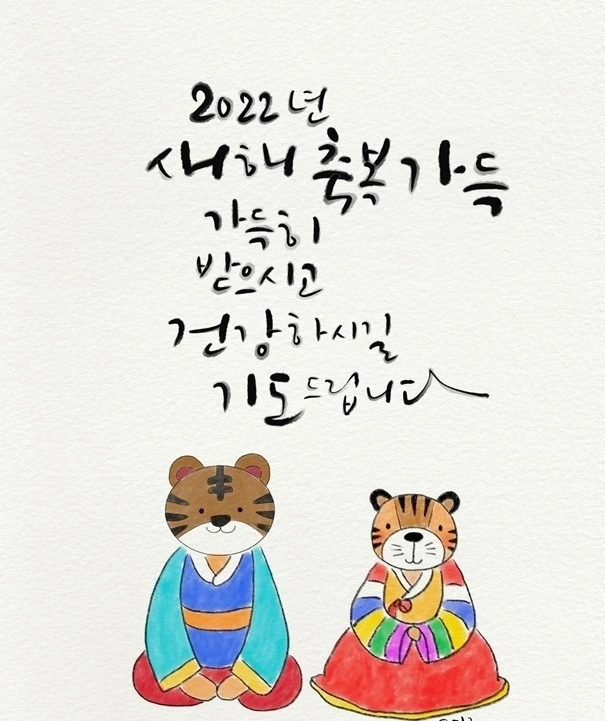 2022년
새해 축복 가득
가득히
받으시고
건강하시길
기도드립니다